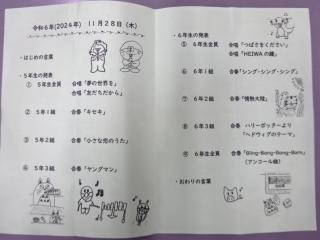 令和6年(2024年) 11月28日(木)
・はじめの言葉
・5年生の発表
① 5年生全員 合唱「夢の世界を」
合唱「友だちだから」
② 5年1組 合奏「キセキ」
③ 5年2組 合奏「小さな恋のうた」
④ 5年3組 合奏「ヤングマン」
・6年生の発表
⑤ 6年生全員 合唱「つばさをください」
合唱「HEIWAの鐘」
⑥ 6年1組 合奏「シング・シング・シング」
⑦ 6年2組 合奏「情熱大陸」
⑧ 6年3組 合奏 ハリーポッターより
「ヘドウィグのテーマ」
⑨ 6年生全員 合奏「Bling-Bang-Bang-Born」
(アンコール曲)
・おわりの言葉